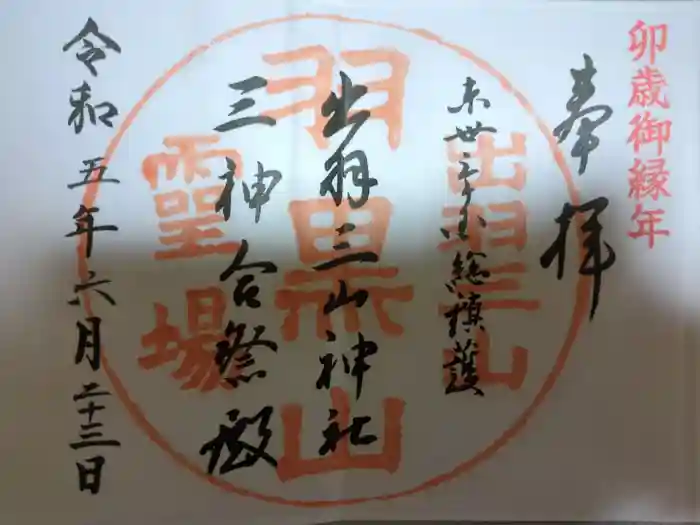 卯歳御縁年
奉拝
出羽三山
総鎮護
出羽三山神社
羽黒山
三神合祭殿
霊場
令和五年六月二十三日